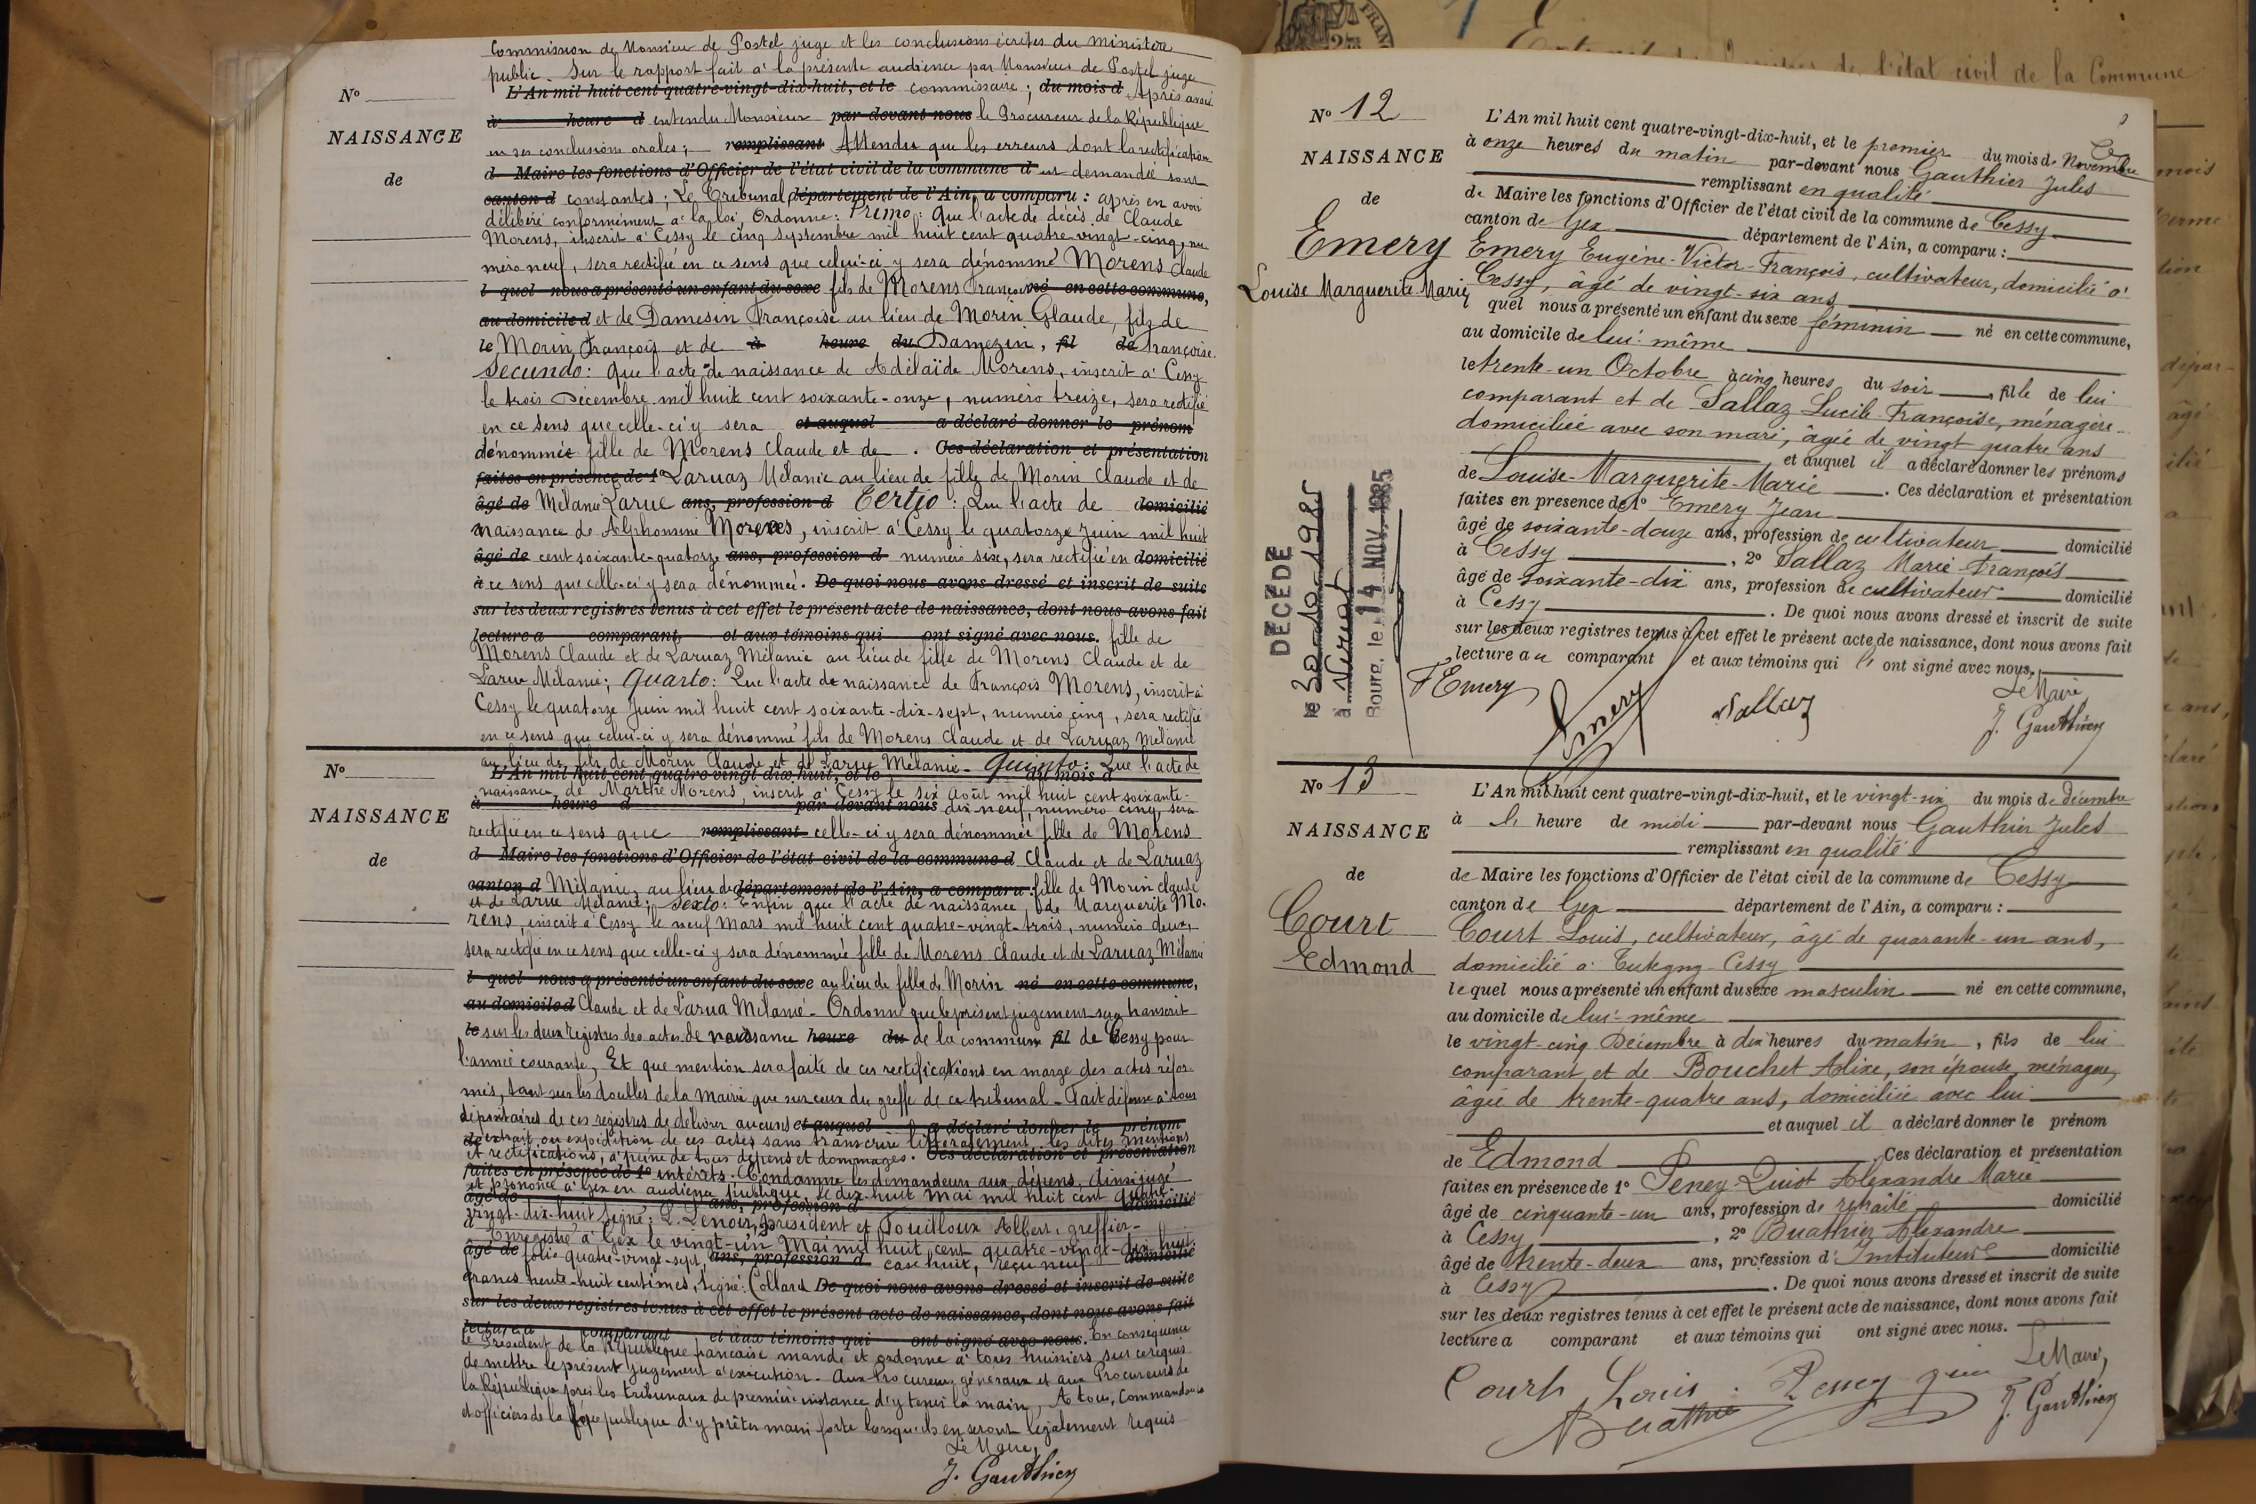 Commission de Monsieur de Postel juge et les conclusions écrites du ministère
public. Sur le rapport fait à la présente audience par Monsieur de Postel juge
N°
L'An mil huit cent quatre-vingt-dix-huit, et le commissaire; du mois d Après avoir
à heure d entendu Monsieur par devant nous le Procureur de la République
NAISSANCE
en ses conclusions orales; remplissant Attendu que les erreurs dont la rectification
d Maire les fonctions d'Officier de l'état civil de la commune d est demandée sont
de
canton d constantes; Le Tribunal département de l'Ain, a comparu: après en avoir
délibéré conformément à la loi, Ordonne: Primo: Que l'acte de décès de Claude
Morens, inscrit à Cessy le cinq septembre mil huit cent quatre-vingt-cinq, nu
méro neuf, sera rectifié en ce sens que celui-ci y sera dénommé Morens Claude
l quel nous a présenté un enfant du sexe fils de Morens François né en cette commune,
au domicile d et de Damesin Françoise au lieu de Morin Glaude, fils de
le Morin François et de à heure du Damezin, fil de Françoise.
Secundo: Que l'acte de naissance de Adélaïde Morens, inscrit à Cessy
le trois Décembre mil huit cent soixante-onze, numéro treize, sera rectifié
en ce sens que celle-ci y sera et auquel a déclaré donner le prénom
dénommée fille de Morens Claude et de . Ces déclaration et présentation
faites en présence de 1° Laruaz Mélanie au lieu de fille de Morin Claude et de
âgé de Mélanie Larue ans, profession d Tertio: Que l'acte de domicilié
naissance de Alphonsine Morens, inscrit à Cessy le quatorze Juin mil huit
âgé de cent soixante-quatorze ans, profession d numéro six, sera rectifié en domicilié
à ce sens que celle-ci y sera dénommée. De quoi nous avons dressé et inscrit de suite
sur les deux registres tenus à cet effet le présent acte de naissance, dont nous avons fait
lecture a comparant, et aux témoins qui ont signé avec nous. fille de
Morens Claude et de Laruaz Mélanie au lieu de fille de Morens Claude et de
Larue Mélanie; Quarto: Que l'acte de naissance de François Morens, inscrit à
Cessy le quatorze Juin mil huit cent soixante-dix-sept, numéro cinq, sera rectifié
en ce sens que celui-ci y sera dénommé fils de Morens Claude et de Laruaz Mélanie
au lieu de fils de Morin Claude et de Larue Mélanie. Quinto: Que l'acte de
N°
L'An mil huit cent quatre vingt dix huit, et le du mois d
naissance de Marthe Morens, inscrit à Cessy le six Août mil huit cent soixante-
à heure d par devant nous dix-neuf, numéro cinq, sera
NAISSANCE
rectifié en ce sens que remplissant celle-ci y sera dénommée fille de Morens
d Maire les fonctions d'Officier de l'état civil de la commune d Claude et de Laruaz
de
canton d Mélanie, au lieu de département de l'Ain, a comparu: fille de Morin Claude
et de Larue Mélanie; Sexto: Enfin que l'acte de naissance de Marguerite Mo-
rens, inscrit à Cessy le neuf Mars mil huit cent quatre-vingt-trois, numéro deux,
sera rectifié en ce sens que celle-ci y sera dénommée fille de Morens Claude et de Laruaz Mélanie
l quel nous a présenté un enfant du sexe au lieu de fille de Morin né en cette commune,
au domicile d Claude et de Larua Mélanie - Ordonne que le présent jugement sera transcrit
le sur les deux registres des actes de naissance heure du de la commune fil de Cessy pour
l'année courante, Et que mention sera faite de ces rectifications en marge des actes réfor-
més, tant sur les doubles de la Mairie que sur ceux du greffe de ce tribunal - Fait défense à tous
dépositaires de ces registres de délivrer aucuns et auquel a déclaré donner le prénom
de extrait ou expédition de ces actes sans transcrire littéralement les dites mentions
et rectifications, à peine de tous dépens et dommages. Ces déclaration et présentation
faites en présence de 1° intérêts. Condamne les demandeurs aux dépens, Ainsi jugé
et prononcé à Gex en audience publique, le dix-huit Mai mil huit cent quatre
âgé de ans, profession d domicilié
vingt-dix-huit Signé: L. Lenoir, président et Touilloux Albert, greffier -
à 2° Enregistré à Gex le vingt-un Mai mil huit cent quatre-vingt-dix huit,
âgé de folio quatre-vingt-sept, ans, profession d case huit, reçu neuf domicilié
francs trente-huit centimes, Signé: Collard De quoi nous avons dressé et inscrit de suite
sur les deux registres tenus à cet effet le présent acte de naissance, dont nous avons fait
lecture a comparant, et aux témoins qui ont signé avec nous. En conséquence
le Président de la République française mande et ordonne à tous huissiers sur ce requis
de mettre le présent jugement à exécution - Aux Procureurs généraux et aux Procureurs de
la République près les tribunaux de première instance d'y tenir la main, A tous, Commandants
et officiers de la force publique d'y prêter main forte lorsqu'ils en seront légalement requis
Le Maire,
J. Gauthier
Extrait de l'état civil de la Commune
N° 12
L'An mil huit cent quatre-vingt-dix-huit, et le premier du mois de Novembre
à onze heures du matin par-devant nous Gauthier Jules
NAISSANCE
remplissant en qualité
de
de Maire les fonctions d'Officier de l'état civil de la commune de Cessy
canton de Gex département de l'Ain, a comparu:
Emery
Emery Eugène-Victor-François, cultivateur, domicilié à
Louise Marguerite Marie
Cessy, âgé de vingt-six ans
quel nous a présenté un enfant du sexe féminin né en cette commune,
au domicile de lui-même
le trente-un Octobre à cinq heures du soir, fille de lui
comparant et de Sallaz Lucile-Françoise, ménagère
domiciliée avec son mari, âgée de vingt quatre ans
et auquel il a déclaré donner les prénoms
de Louise-Marguerite-Marie. Ces déclaration et présentation
faites en presence de 1° Emery Jean
âgé de soixante-douze ans, profession de cultivateur domicilié
à Cessy, 2° Sallaz Marie-François
âgé de soixante-dix ans, profession de cultivateur domicilié
à Cessy. De quoi nous avons dressé et inscrit de suite
sur les deux registres tenus à cet effet le présent acte de naissance, dont nous avons fait
lecture au comparant et aux témoins qui l' ont signé avec nous.
DÉCÉDÉ
le 30-10-1985
à
Bourg, le 14 NOV. 1985
F Emery
Emery
Sallaz
Le Maire
J. Gauthier
N° 13
L'An mil huit cent quatre-vingt-dix-huit, et le vingt-six du mois de décembre
à l' heure de midi par-devant nous Gauthier Jules
NAISSANCE
remplissant en qualité
de
de Maire les fonctions d'Officier de l'état civil de la commune de Cessy
canton de Gex département de l'Ain, a comparu:
Court
Court Louis, cultivateur, âgé de quarante-un ans,
Edmond
domicilié à Tutegny-Cessy
lequel nous a présenté un enfant du sexe masculin né en cette commune,
au domicile de lui-même
le vingt-cinq Décembre à dix heures du matin, fils de lui
comparant et de Bouchet Alixe, son épouse, ménagère,
âgée de trente-quatre ans, domiciliée avec lui
et auquel il a déclaré donner le prénom
de Edmond. Ces déclaration et présentation
faites en présence de 1° Peney-Quist Alexandre Marie
âgé de cinquante-un ans, profession de retraité domicilié
à Cessy, 2° Buathier Alexandre
âgé de trente-deux ans, profession d'Instituteur domicilié
à Cessy. De quoi nous avons dressé et inscrit de suite
sur les deux registres tenus à cet effet le présent acte de naissance, dont nous avons fait
lecture a comparant et aux témoins qui ont signé avec nous.
Court Louis. Peney
Buathier
Le Maire,
J. Gauthier